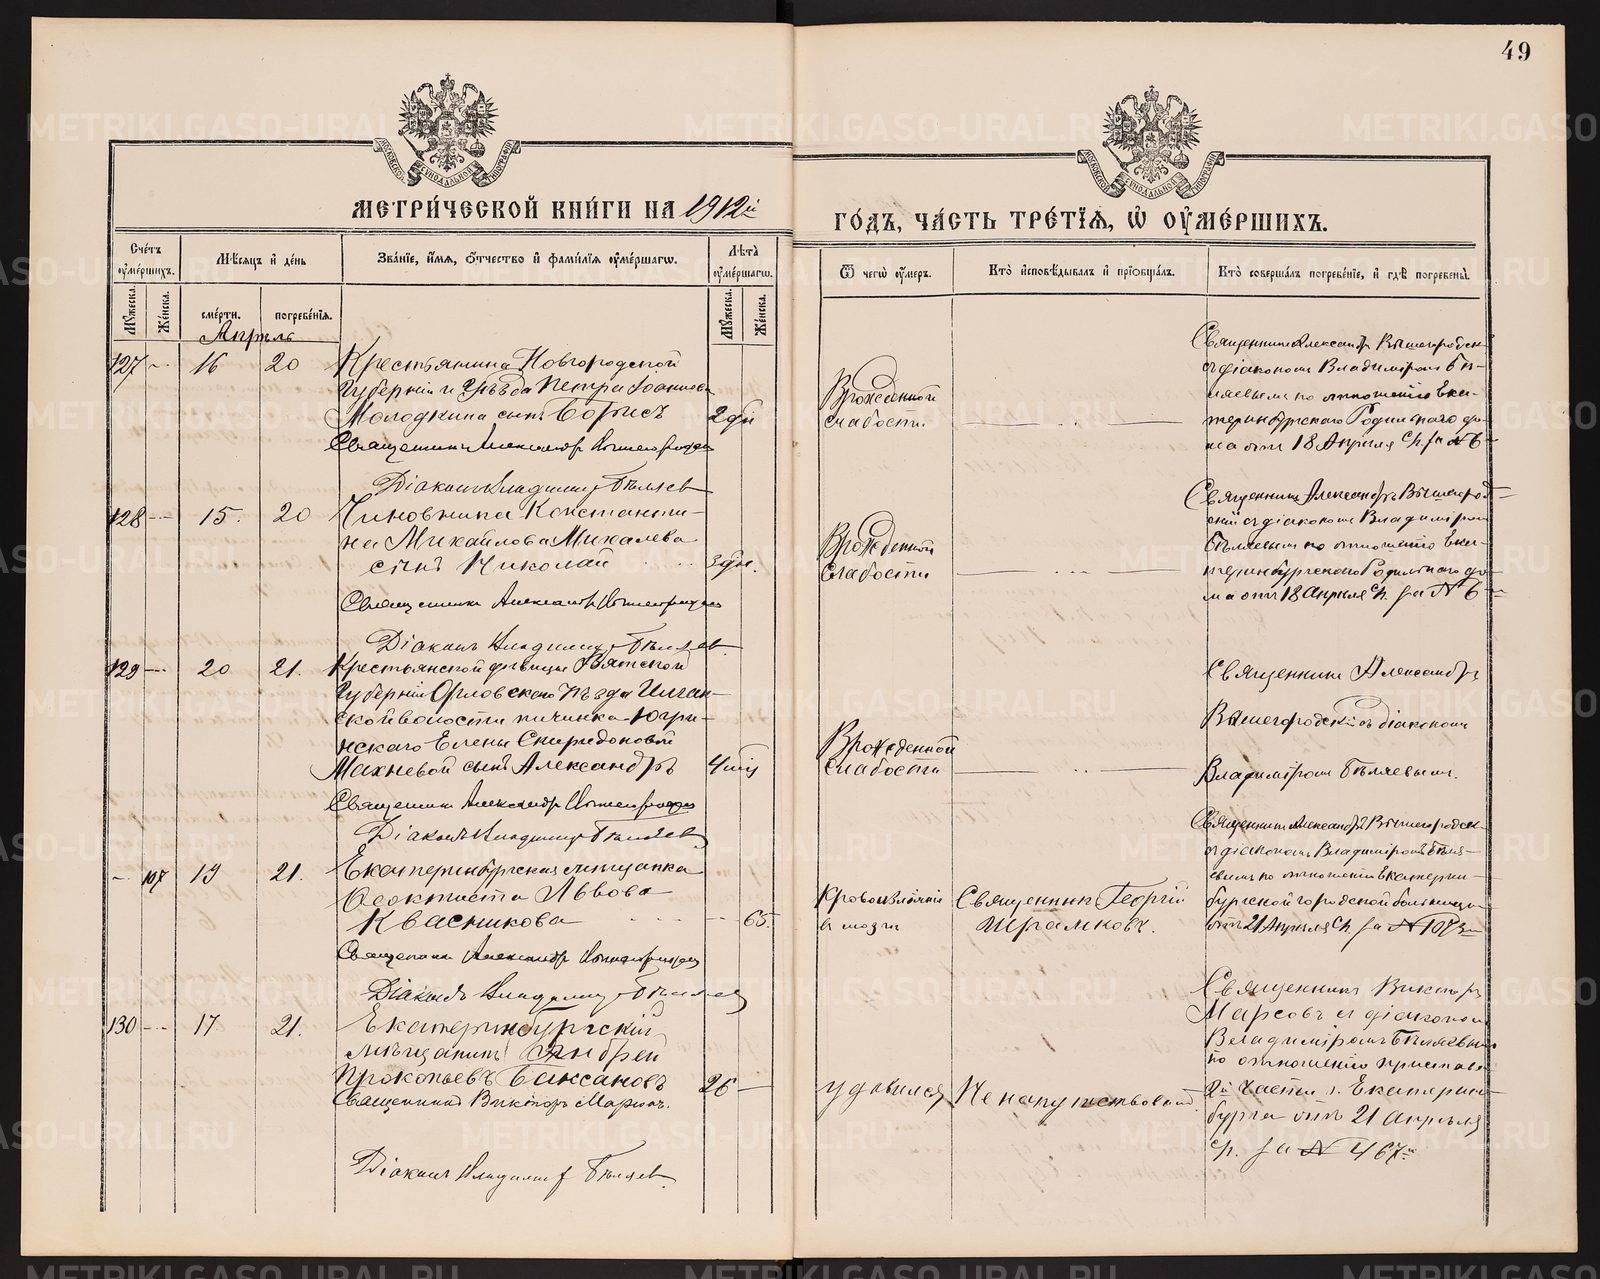 49
МОСКОВСКОЙ СѴНОДАЛЬНОЙ ТИПОГРАФІИ
МОСКОВСКОЙ СѴНОДАЛЬНОЙ ТИПОГРАФІИ
МЕТРИ́ЧЕСКОЙ КНИ́ГИ НА 1912й
ГО́ДЪ, ЧА́СТЬ ТРЕ́ТЇѦ, Ѡ҆ ОУ҆МЕ́РШИХЪ.
Сче́тъ оу҆ме́ршихъ.
Мѣ́сѧцъ и҆ де́нь
Зва́нїе, и҆́мѧ, ѻ҆́тчество и҆ фами́лїѧ оу҆ме́ршагѡ.
Лѣ̑та̀ оу҆ме́ршагѡ.
Мꙋ́жеска.
Же́нска.
сме́рти.
погребе́нїѧ.
Мꙋ́жеска.
Же́нска.
Ѿ чегѡ̀ оу҆́меръ.
Кто̀ и҆сповѣ́дывалъ и҆ прїѡбща́лъ.
Кто̀ соверша́лъ погребе́нїе, и҆ гдѣ̀ погребены̀.
Апрѣль
127 -- 16 20
Крестьянина Новгородской
губерніи и уѣзда Петра Іоаннова
Молодкина сынъ Борисъ 2 дн
Священникъ Александр Вышегородск
Діаконъ Владимир Бѣляев
Врожденной
слабости
Священникъ Александр Вышегородск
съ діакономъ Владиміромъ Бѣ-
ляевымъ по отношенію Ека-
теринбургскаго Родильнаго до-
ма отъ 18 Апрѣля с/г. за № 6
128 -- 15. 20
Чиновника Константи-
на Михайлова Михалева
сынъ Николай 3 дн.
Священникъ Александр Вышегородск
Діаконъ Владимир Бѣляев
Врожденной
слабости
Священникъ Александръ Вышегород-
скій съ діакономъ Владиміром
Бѣляевымъ по отношенію Ека-
теринбургскаго Родильнаго до-
ма отъ 18 Апрѣля с/г. за № 6
129 -- 20 21.
Крестьянской дѣвицы Вятской
губерніи Орловскаго уѣзда
ской волости починка
нскаго Елены Спиридоновой
Махневой сынъ Александръ 4 мѣс
Священник Александр Вышегородск
Діаконъ Владимир Бѣляев
Врожденной
слабости
Священникъ Александръ
Вышегородскій съ діакономъ
Владиміромъ Бѣляевымъ.
-- 107 19 21.
Екатеринбургская мѣщанка
Феоктиста Львова
Квасникова 65.
Священник Александр Вышегородск
Діаконъ Владимир Бѣляев
Кровоизліяніе
въ мозгъ
Священникъ Георгій
Шрамковъ.
Священникъ Александръ Вышегородск
съ діакономъ Владиміромъ Бѣля-
евымъ по отношенію Екатерин-
бургской городской больницы
отъ 21 Апрѣля с/г. за № 1073
130 -- 17 21.
Екатеринбургскій
мѣщанинъ Андрей
Прокопьевъ Баксановъ 26 --
Священникъ Викторъ Марсовъ.
Діаконъ Владимир Бѣляев
удавился
Не напутствованъ.
Священникъ Викторъ
Марсовъ съ діакономъ
Владиміромъ Бѣляевым
по отношенію пристава
2й части г. Екатерин-
бурга отъ 21 апрѣля
с/г. за № 467